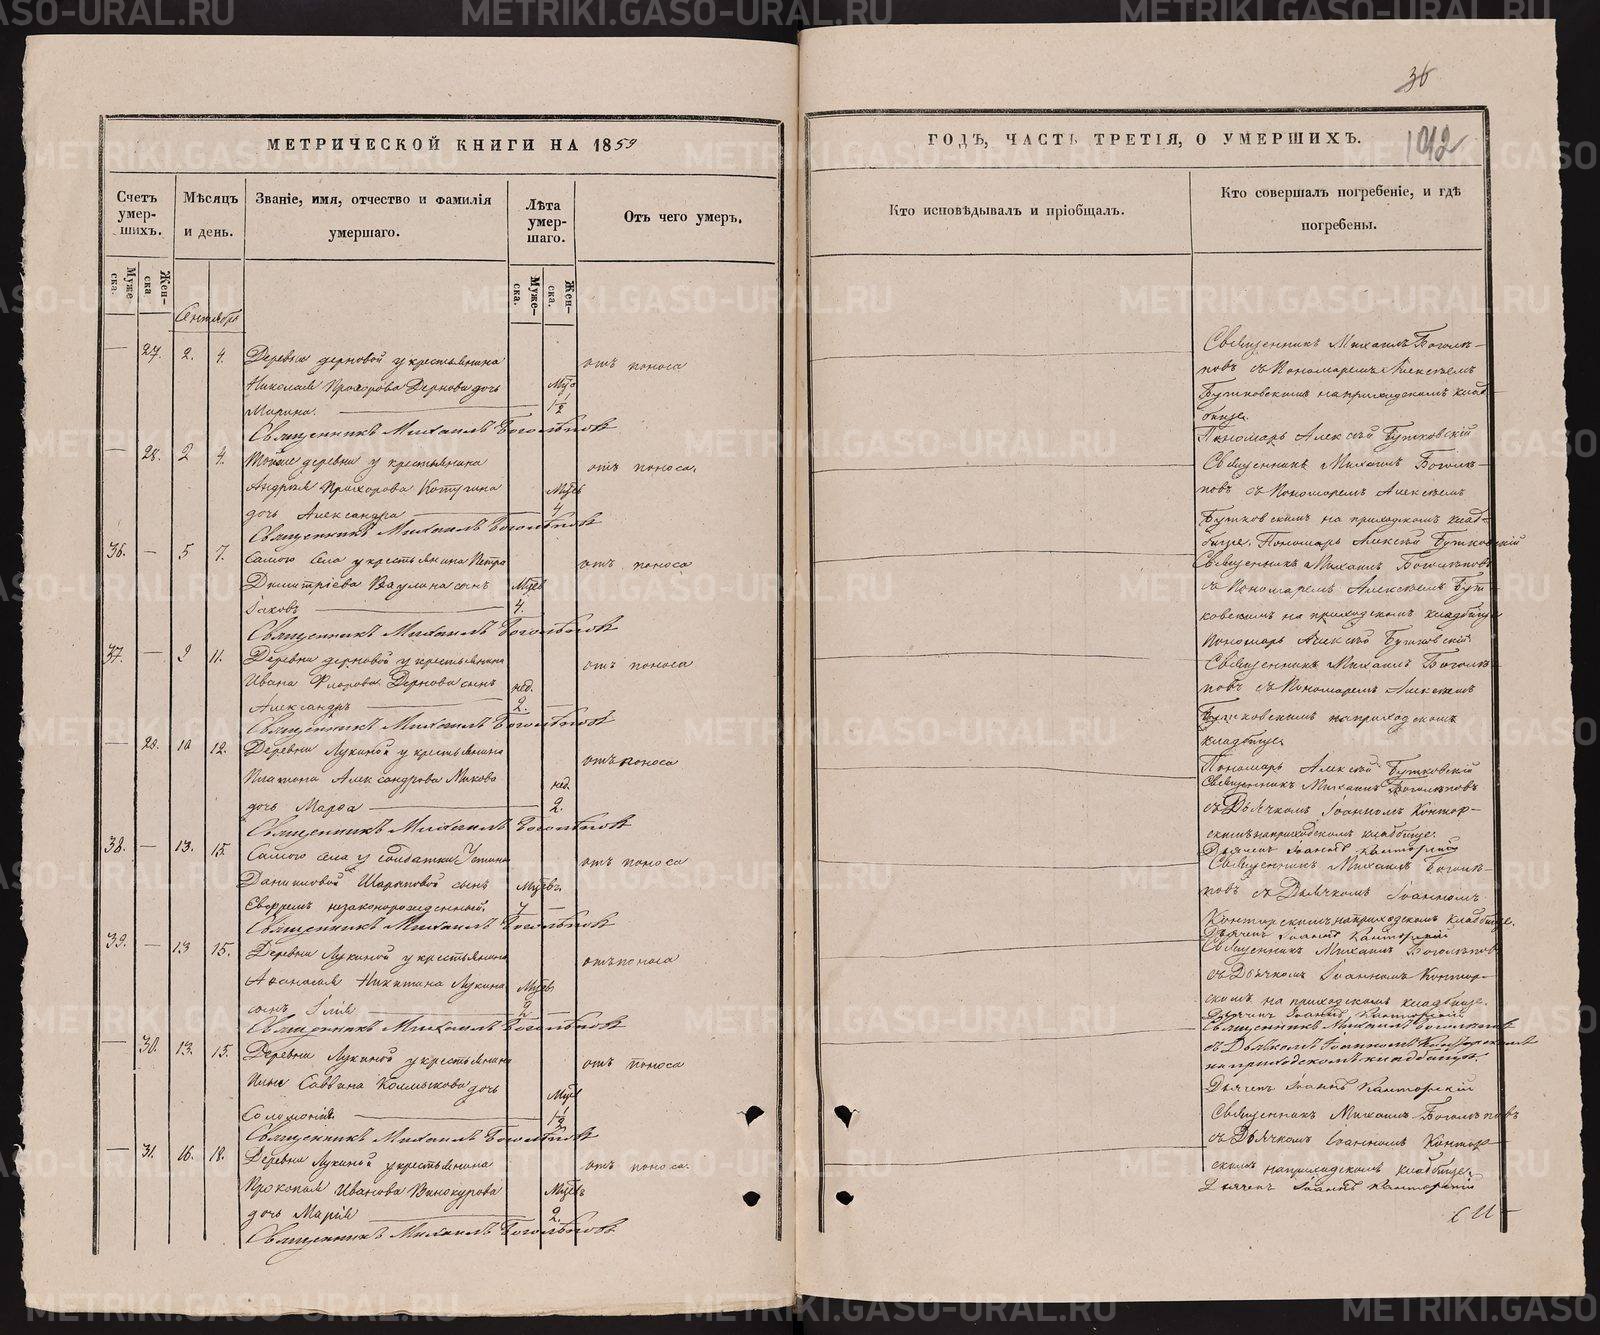 36
МЕТРИЧЕСКОЙ КНИГИ НА 1859
ГОДЪ, ЧАСТЬ ТРЕТІЯ, О УМЕРШИХЪ.
1042
Счетъ умер-шихъ.
Мѣсяцъ и день.
Званіе, имя, отчество и фамилія умершаго.
Лѣта умер-шаго.
Отъ чего умеръ.
Кто исповѣдывалъ и пріобщалъ.
Кто совершалъ погребеніе, и гдѣ погребены.
Муже-ска.
Жен-ска
Муже-ска.
Жен-ска.
Сентябрь
— 27. 2. 4. Деревни дерновой у крестьянина
Николая Прохорова Дернова дочь
Марина.
1 1/2
отъ поноса
Священникъ Михаилъ Боголѣповъ
Священникъ Михаилъ Боголѣ-
повъ съ Пономаремъ Алексѣемъ
Бутковскимъ на приходскомъ клад-
бище.
Пономарь Алексѣй Бутковскій
— 28. 2 4. Тойже деревни у крестьянина
Андрея Прохорова
дочь Александра
4
отъ поноса.
Священникъ Михаилъ Боголѣповъ
Священникъ Михаилъ Боголѣ-
повъ съ Пономаремъ Алексѣемъ
Бутковскимъ на приходскомъ клад-
бище. Пономарь Алексѣй Бутковскій
36. — 5 7. Самого села у крестьянина Петра
Димитріева Ваулина сынъ
Іаковъ
4.
отъ поноса
Священникъ Михаилъ Боголѣповъ
Священникъ Михаилъ Боголѣповъ
съ Пономаремъ Алексѣемъ Бут-
ковскимъ на приходскомъ кладбище
Пономарь Алексѣй Бутковскій
37. — 9 11. Деревни дерновой у крестьянина
Ивана Флорова Дернова сынъ
Александръ
нед.
2.
отъ поноса
Священникъ Михаилъ Боголѣповъ
Священникъ Михаилъ Боголѣ-
повъ съ Пономаремъ Алексѣемъ
Бутковскимъ на приходскомъ
кладбище.
Пономарь Алексѣй Бутковскій
— 29. 10 12. Деревни Лукиной у крестьянина
Платона Александрова
дочь Марѳа
нед.
2.
отъ поноса
Священникъ Михаилъ Боголѣповъ
Священникъ Михаилъ Боголѣповъ
съ Дьячкомъ Іоанномъ Контор-
скимъ на приходскомъ кладбище.
Дьячекъ Іоаннъ Канторскій
38. — 13. 15. Самого села у солдатки Устиньи
Даниловой Шараповой сынъ
незаконорожденный.
отъ поноса
Священникъ Михаилъ Боголѣповъ
Священникъ Михаилъ Боголѣ-
повъ съ Дьячкомъ Іоанномъ
Конторскимъ на приходскомъ кладбище.
Дьячекъ Іоаннъ Канторскій
39. — 13 15. Деревни Лукиной у крестьянина
Аѳанасія Никитина Лукина
сынъ Илія
2
отъ поноса
Священникъ Михаилъ Боголѣповъ
Священникъ Михаилъ Боголѣповъ
съ Дьячкомъ Іоанномъ Контор-
скимъ на приходскомъ кладбище.
Дьячекъ Іоаннъ Канторскій
— 30. 13. 15. Деревни Лукиной у крестьянина
Саввина Колмыкова дочь
Соломонія.
1 1/2
отъ поноса
Священникъ Михаилъ Боголѣповъ
Священникъ Михаилъ Боголѣповъ
съ Дьячкомъ Іоанномъ Конторскимъ
на приходскомъ кладбище
Дьячекъ Іоаннъ Канторскій
— 31. 16. 18. Деревни Лукиной у крестьянина
Прокопія Иванова Винокурова
дочь Марія
2
отъ поноса.
Священникъ Михаилъ Боголѣповъ
Священникъ Михаилъ Боголѣповъ
съ Дьячкомъ Іоанномъ Контор-
скимъ на приходскомъ кладбище.
Дьячекъ Іоаннъ Канторскій
METRIKI.GASO-URAL.RU